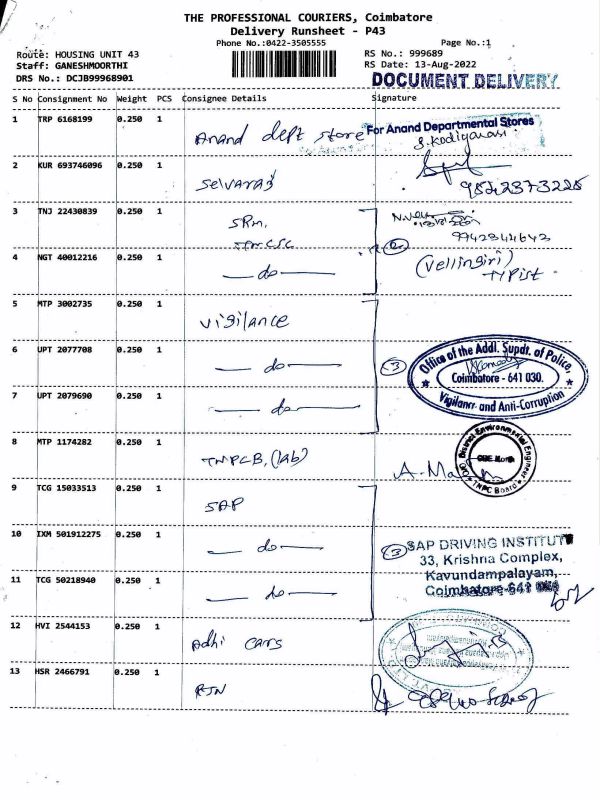 THE PROFESSIONAL COURIERS, Coimbatore
Delivery Runsheet - P43
Phone No.:0422-3505555
Page No.:1
Route: HOUSING UNIT 43
RS No.: 999689
Staff: GANESHMOORTHI
RS Date: 13-Aug-2022
DRS No.: DCJB99968901
DOCUMENT DELIVERY
S No Consignment No Weight PCS Consignee Details Signature
1 TRP 6168199 0.250 1
Anand dept store For Anand Departmental Stores
2 KUR 693746096 0.250 1
Selvaraj
3 TNJ 22430839 0.250 1
SRM,
9942344643
4 NGT 40012216 0.250 1
— do — (2) (Vellingiri)
Typist
5 MTP 3002735 0.250 1
vigilance
6 UPT 2077708 0.250 1
— do — (3) Office of the Addl. Supdt. of Police,
Coimbatore - 641 030.
Vigilance and Anti-Corruption
7 UPT 2079690 0.250 1
— do —
8 MTP 1174282 0.250 1
TNPCB, (lab) District Environmental Engineer
TNPC Board
9 TCG 15033513 0.250 1
SAP
10 IXM 501912275 0.250 1
— do — (3) SAP DRIVING INSTITUTE
33, Krishna Complex,
Kavundampalayam,
11 TCG 50218940 0.250 1
— do — Coimbatore-641
12 HVI 2544153 0.250 1
Adhi cars
13 HSR 2466791 0.250 1
RJN